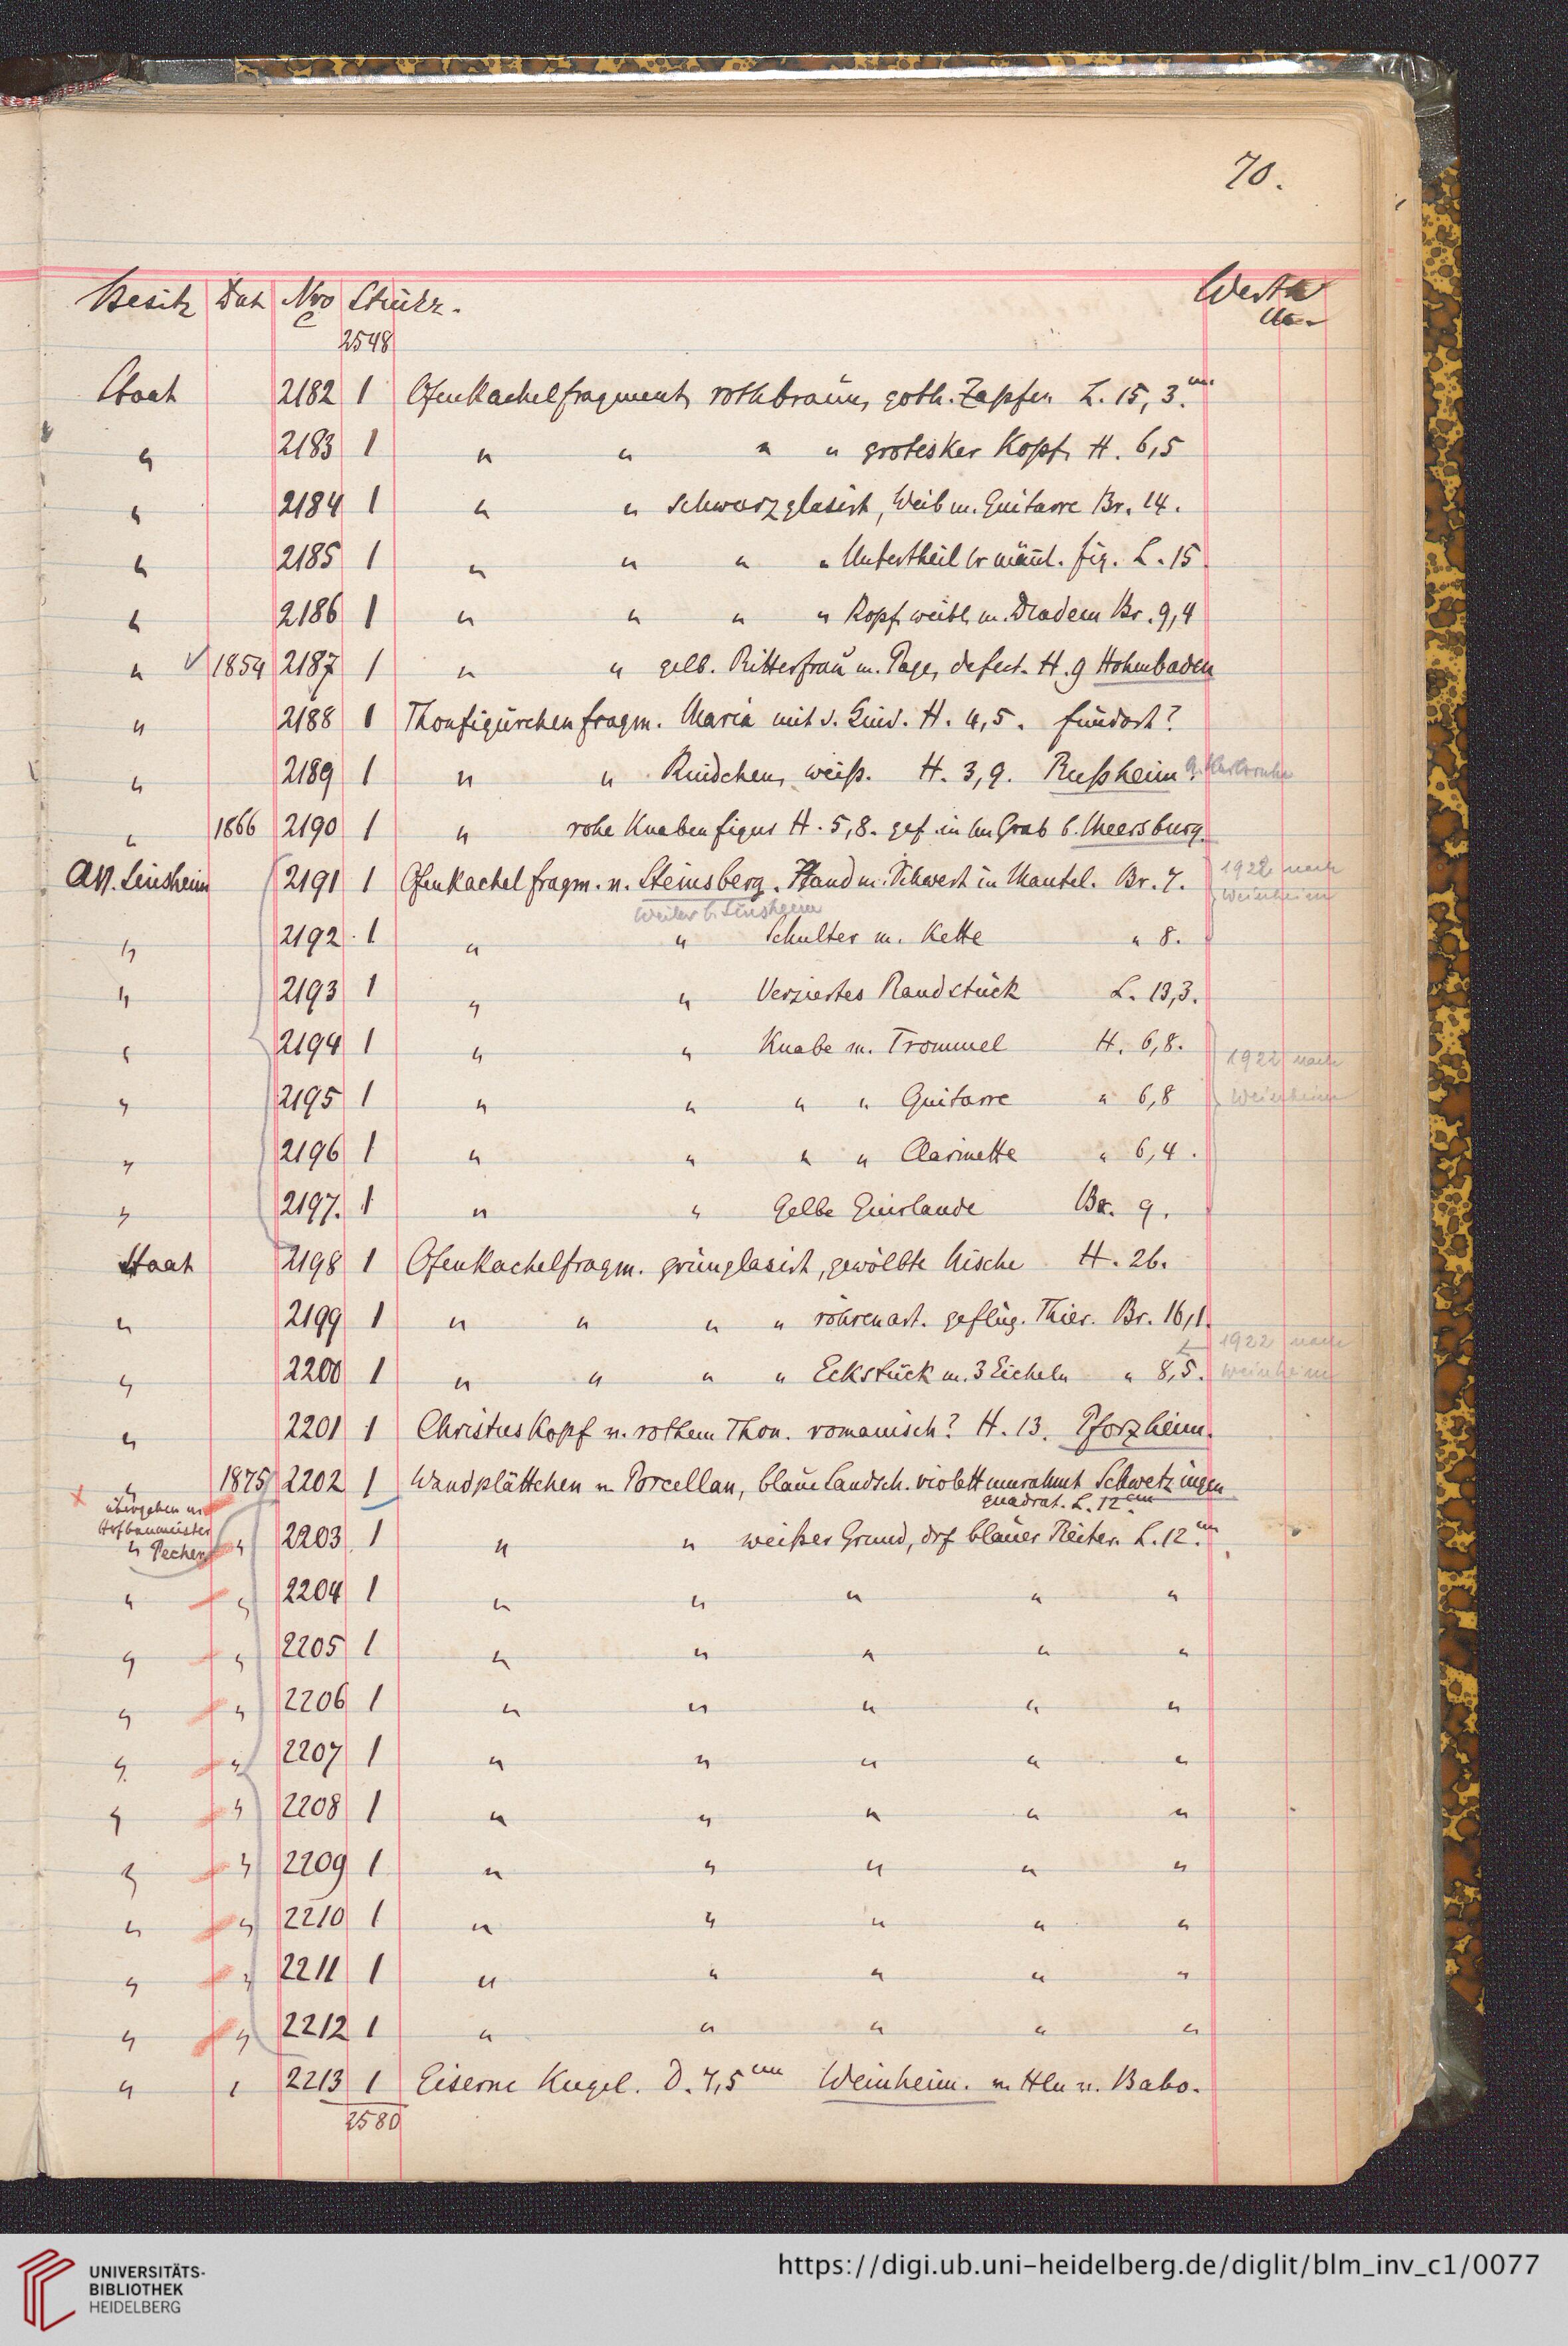 70.
Besitz Dat Nro Stückz. Werth
C M.
2548
Staat 2182 1 Ofenkachelfragment, rothbraun, goth. Zapfen L. 15,3.cm
" 2183 1 " " " " grotesker Kopf, H. 6,5
" 2184 1 " " schwarzglasirt, Weib m. Guitarre Br. 14.
" 2185 1 " " " " Untertheil männl. Fig. L. 15
" 2186 1 " " " " Kopf weibl. m. Diadem Br. 9,4
" ✓ 1854 2187 1 " " gelb. Ritterfrau m. Page, defect. H. 9 Hohenbaden
" 2188 1 Thonfigürchenfragm. Maria mit d. Kind. H. 4,5. Fundort?
" 2189 1 " " Kindchen, weiß. H. 3,9. Rußheim A. Karlsruhe
" 1866 2190 1 " rohe Knabenfigur H. 5,8. gef. in Grab b. Meersburg.
AV. Sinsheim 2191 1 Ofenkachelfragm. v. Steinsberg. Hand m. Schwert in Mantel. Br. 7. 1922 nach
Weiler b. Sinsheim Weinheim
" 2192. 1 " " Schulter m. Kette " 8.
" 2193 1 " " Verziertes Randstück L. 13,3.
" 2194 1 " " Knabe m. Trommel H. 6,8. 1922 nach
" 2195 1 " " " " Guitarre " 6,8 Weinheim
" 2196 1 " " " " Clarinette " 6,4.
" 2197. 1 " " Gelbe Guirlande Br. 9.
Staat 2198 1 Ofenkachelfragm. grünglasirt, gewölbte Nische H. 26.
" 2199 1 " " " " röhrenart. geflüg. Thier. Br. 16,1.
1922 nach
" 2200 1 " " " " Eckstück m. 3 Eicheln " 8,5. Weinheim
" 2201 1 Christuskopf v. rothem Thon. romanisch? H. 13. Pforzheim.
" 1875 2202 1 Wandplättchen v. Porcellan, blaue Landsch. violett umrahmt Schwetzingen
x übergeben quadrat. L. 12 cm
Hofbaumeister
" Pecher " 2203 1 " " weißer Grund, drf blauer Reiter. L. 12.cm
" " 2204 1 " " " " "
" " 2205 1 " " " " "
" " 2206 1 " " " " "
" " 2207 1 " " " " "
" " 2208 1 " " " " "
" " 2209 1 " " " " "
" " 2210 1 " " " " "
" " 2211 1 " " " " "
" " 2212 1 " " " " "
" " 2213 1 Eiserne Kugel. D. 7,5 cm Weinheim. v. Hln v. Babo.
2580
UNIVERSITÄTS-
BIBLIOTHEK
HEIDELBERG
https://digi.ub.uni-heidelberg.de/diglit/blm_inv_c1/0077